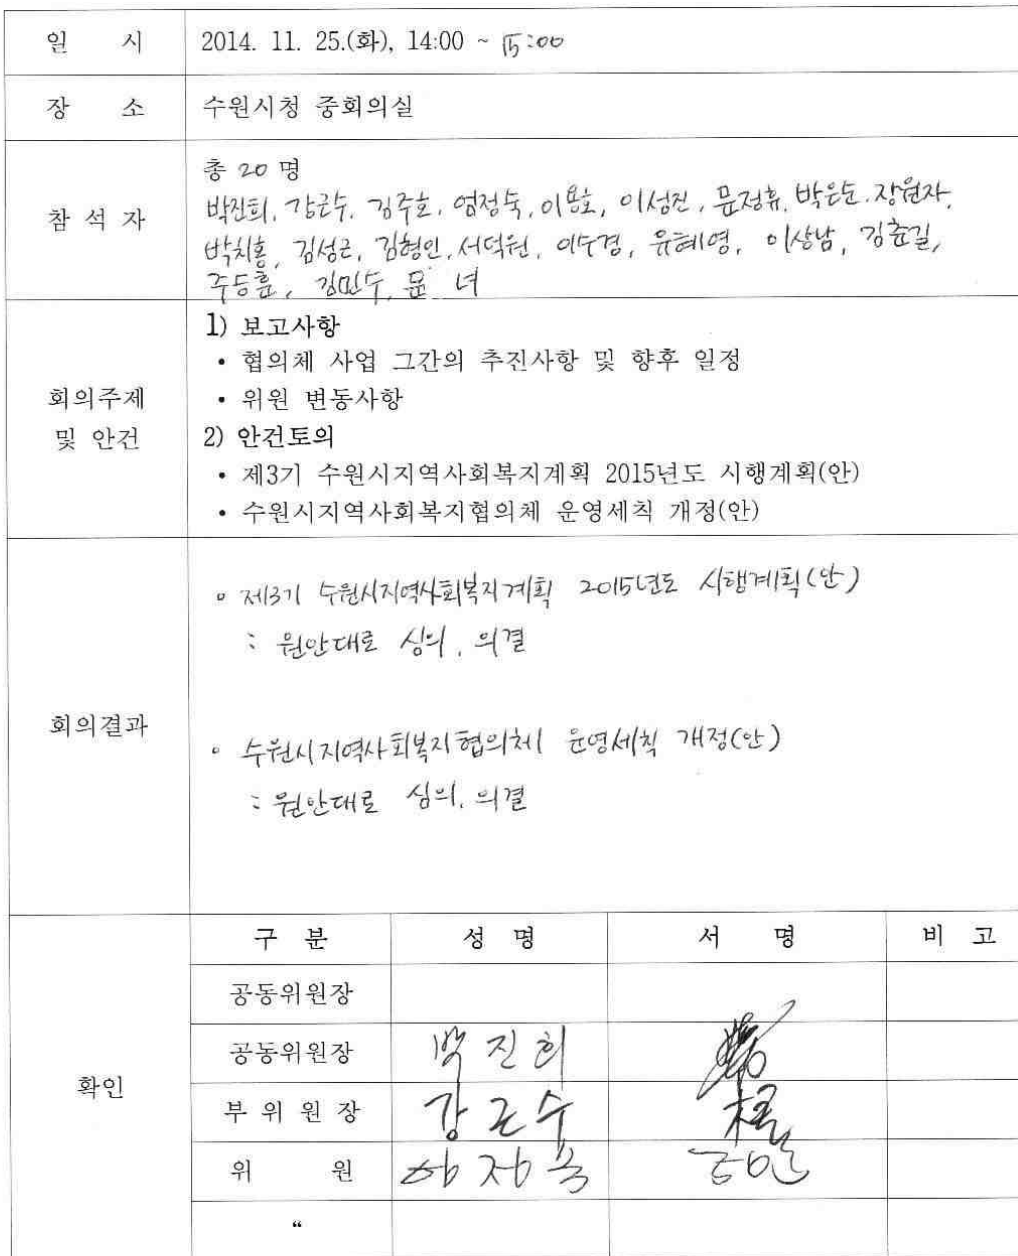 일 시 2014. 11. 25.(화), 14:00 ~ 15:00
장 소 수원시청 중회의실
총 20 명
참 석 자 박진희, 강근수, 김주호, 엄정숙, 이용호, 이성진, 문정휴, 박은순, 장원자,
박치홍, 김성근, 김형인, 서덕원, 이수경, 유혜영, 이상남, 김효길,
주등흠, 김민수, 문 녀
1) 보고사항
• 협의체 사업 그간의 추진사항 및 향후 일정
회의주제 • 위원 변동사항
및 안건 2) 안건토의
• 제3기 수원시지역사회복지계획 2015년도 시행계획(안)
• 수원시지역사회복지협의체 운영세칙 개정(안)
◦ 제3기 수원시지역사회복지계획 2015년도 시행계획(안)
: 원안대로 심의, 의결
회의결과
◦ 수원시지역사회복지협의체 운영세칙 개정(안)
: 원안대로 심의, 의결
확인
구 분 성 명 서 명 비 고
공동위원장
공동위원장 박진희
부 위 원 장 강근수
위 원
“